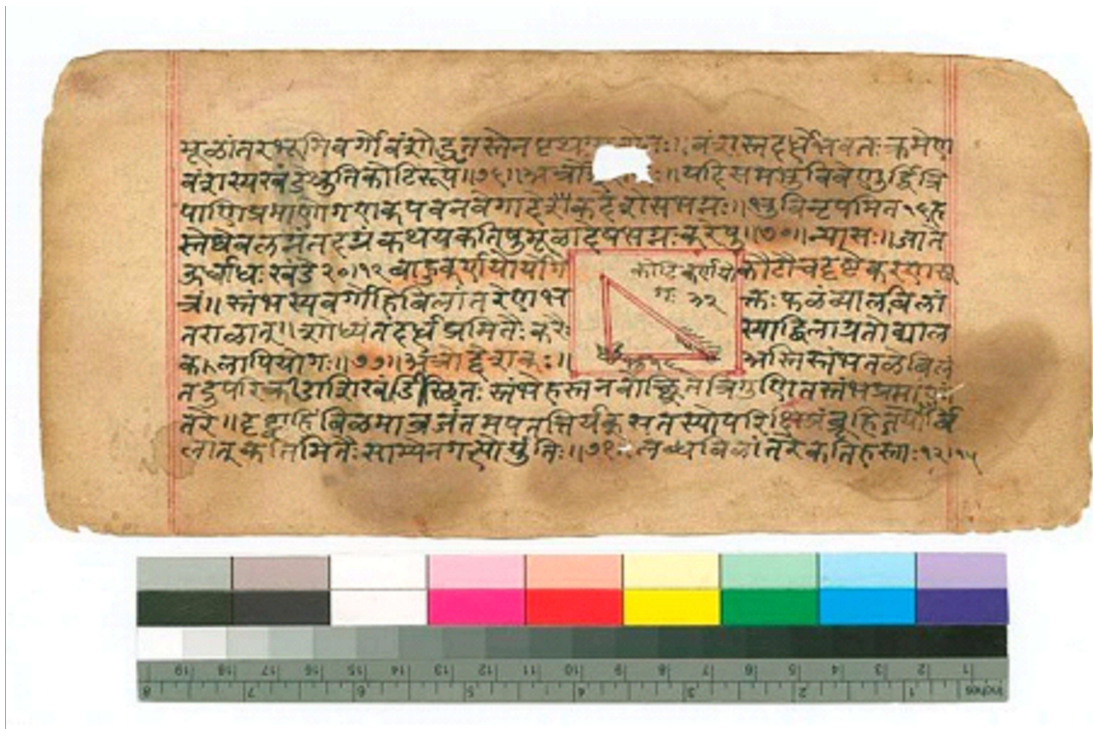 मूळांतरभूमिवर्गोवंशोद्धृतस्तेनपृथग् वंशस्तदर्धेभवतः क्रमेण
वंशस्यखंडेश्रुतिकोटिरूपे॥७६॥अत्रो कः॥यदिसमभुविवेणुर्द्वित्रि
पाणिप्रमाणोगणकपवनवेगादेकदेशेसभग्नः॥भुविनृपमित१६ह
स्तेष्वेवलग्नंतदग्रंकथयकतिषुमूळादेषभग्नः करेषु॥७०॥न्यासः॥जाते
ऊर्ध्वाधः खंडे२०।१२बाहुकर्णयोर्योगे कोटिकर्णयो कोटौचदृष्टेकरणसू
त्रं॥स्तंभस्यवर्गोहिबिलांतरेणभ गः ३२ क्तः फलंव्यालबिलां
तराळात्॥शोध्यंतदर्धप्रमितैः करैः स्याद्बिलाग्रतोव्याल
कलापियोगः॥७७॥अत्रोद्देशकः॥ अस्तिस्तंभतळेबिलं
तदुपरिक्रीडाशिखंडीस्थितः स्तंभेहस्तनवोच्छ्रितेत्रिगुणितस्तंभप्रमाणां
तरे॥दृष्ट्वाहिंबिळमाव्रजंतमपतत्तिर्यक्सतस्योपरिक्षिप्रंब्रूहितयोर्बि
लात्कतिमितैः साम्येनगत्योर्युतिः॥७१॥लब्धबिलांतरेकतिहस्ताः१२।१५
19 18 17 16 15 14 13 12 11 10 9 8 7 6 5 4 3 2 1
8 7 6 5 4 3 2 1 inches